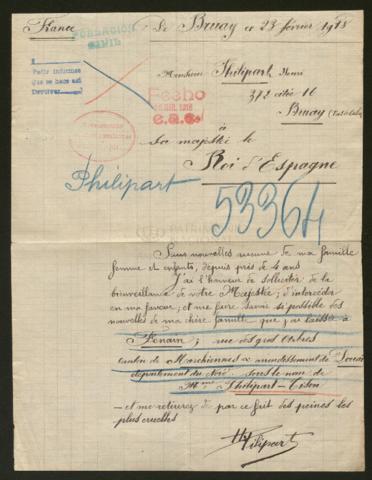 France
Le Bruay ce 23 février 1918
Pedir informes
que se hace est
Devolver
Monsieur Philipart Henri
372 cités 16
Bruay (Pas de Calais)
Fecho
1918
à
Sa majesté le
Roi d'Espagne
Philipart
53364
Sans nouvelles aucune de ma famille
femme et enfants, depuis près de 4 ans
J'ai l'honneur de solliciter de la
bienveillance de votre Majestée, d'intercéder
en ma faveur; et me faire savoir si possible des
nouvelles de ma chère famille que j'ai laissée à
rue des gros Arbres
canton de Marchiennes arrondissement de Douai
département du Nord sous le nom de
Mme Philipart-
- et me retirerez de par ce fait des peines les
plus cruelles
HPhilipart